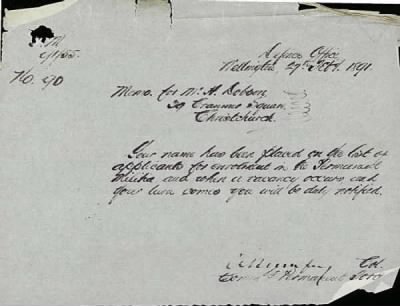 No. 90
Defence Office
Wellington, 29th Oct. 1891.
Memo. for Mr. A. Dobson
29 Cranmer Square
Christchurch.
Your name has been placed on the list of
applicants for enrolment in the Permanent
Militia and when a vacancy occurs and
your turn comes you will be duly notified.
Col.
Permanent Force